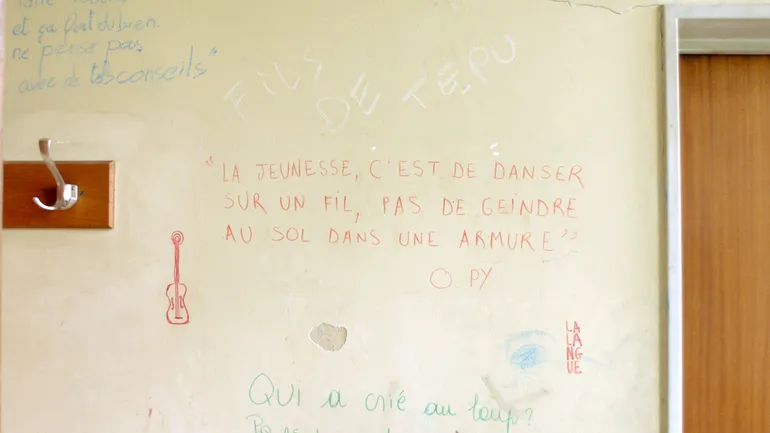 et ça fait du bien.
ne pense pas
avec de tels conseils"
FILS
DE TE.PU
"LA JEUNESSE, C'EST DE DANSER
SUR UN FIL, PAS DE GEINDRE
AU SOL DANS UNE ARMURE"
O PY
LA
LAN
GUE
QUI a crié au loup?